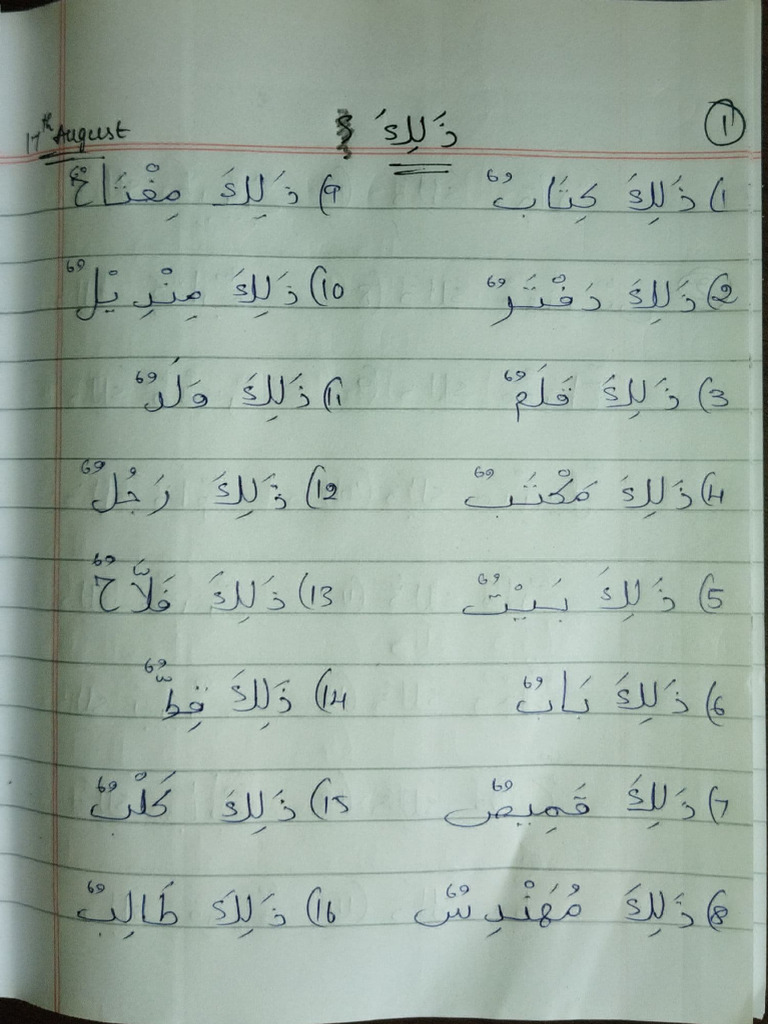 17th August
ذَلِكَ
1
1) ذَلِكَ كِتَابٌ
2) ذَلِكَ دَفْتَرٌ
3) ذَلِكَ قَلَمٌ
4) ذَلِكَ مَكْتَبٌ
5) ذَلِكَ بَيْتٌ
6) ذَلِكَ بَابٌ
7) ذَلِكَ قَمِيصٌ
8) ذَلِكَ مُهَنْدِسٌ
9) ذَلِكَ مِفْتَاحٌ
10) ذَلِكَ مِنْدِيْلٌ
11) ذَلِكَ وَلَدٌ
12) ذَلِكَ رَجُلٌ
13) ذَلِكَ فَلَّاحٌ
14) ذَلِكَ قِطٌّ
15) ذَلِكَ كَلْبٌ
16) ذَلِكَ طَالِبٌ